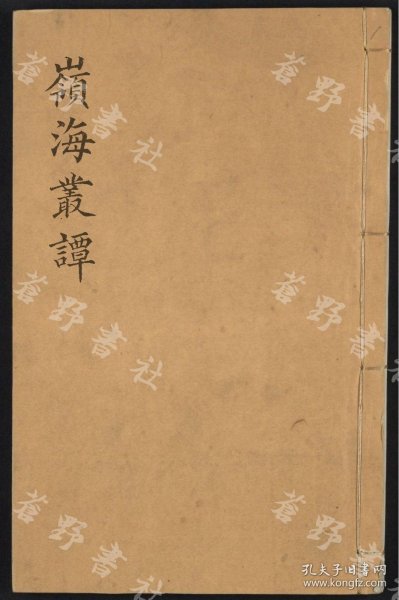 嶺海叢譚
蒼野書社
蒼野書社
蒼野書社
蒼野書社
蒼野書社
蒼野書社
孔夫子旧书网
www.kongfz.com